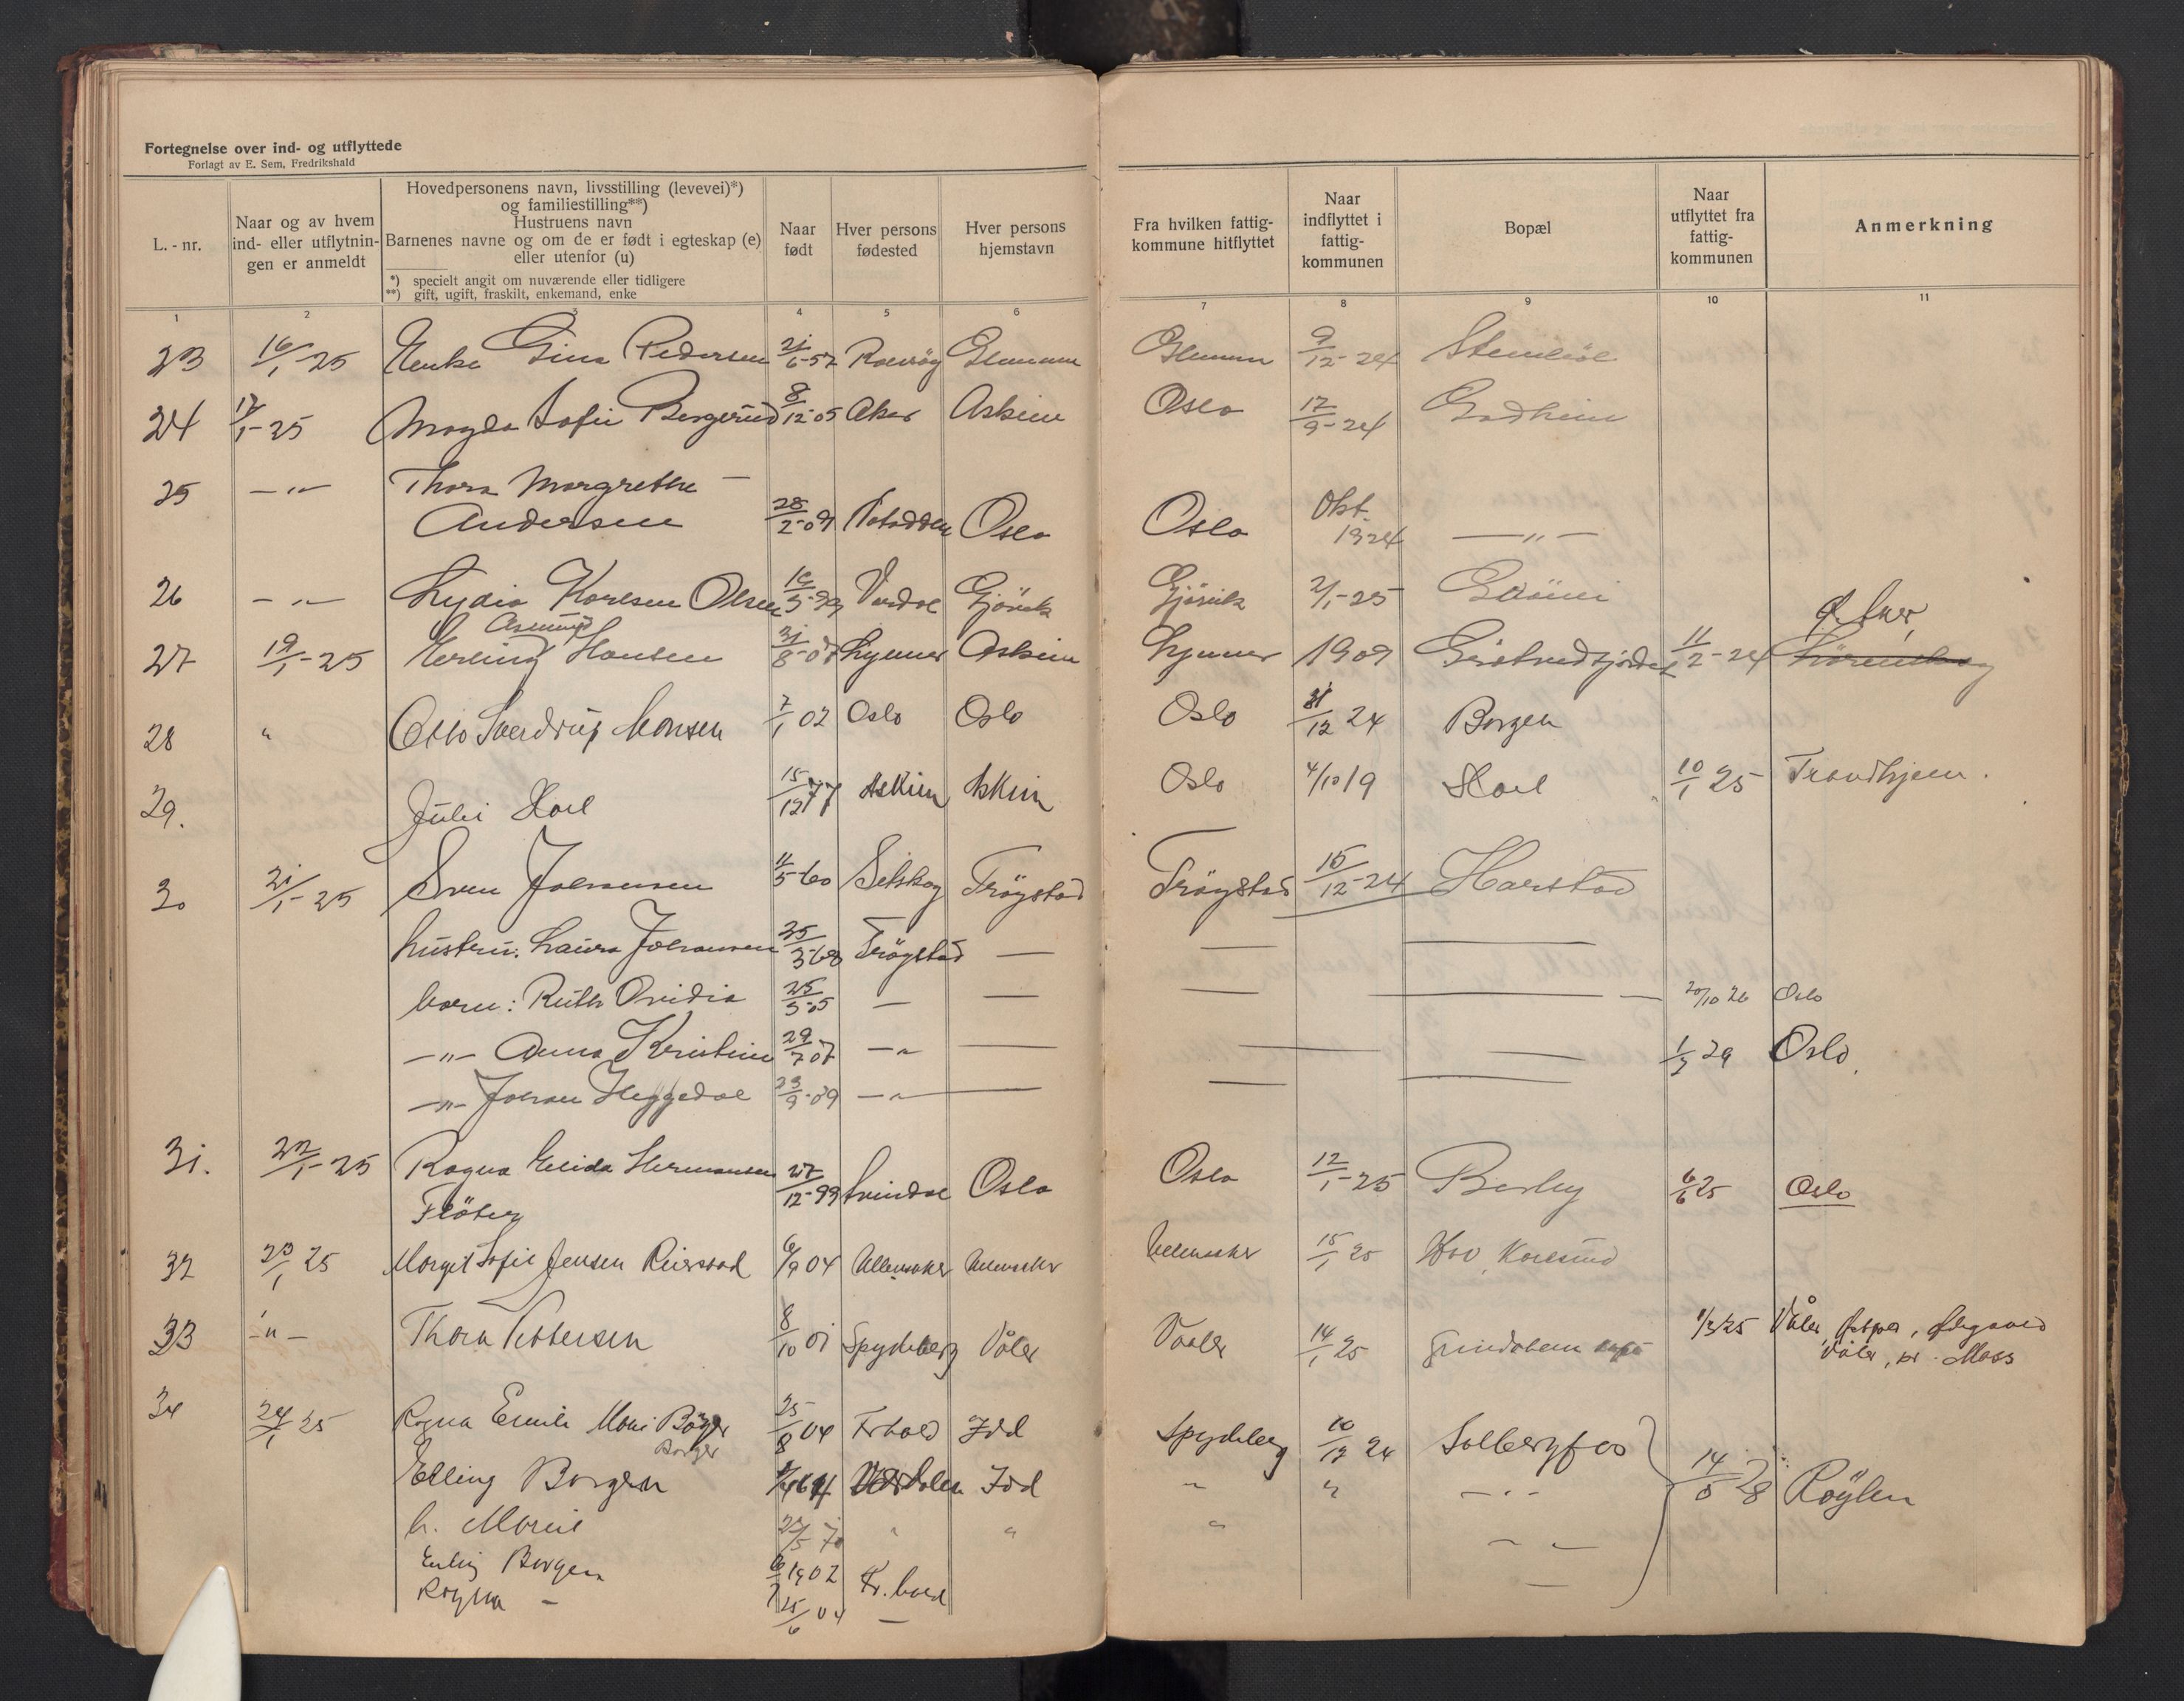 Fortegnelse over ind- og utflyttede
Forlagt av E. Sem, Fredrikshald
L. - nr.
Naar og av hvem
ind- eller utflytnin-
gen er anmeldt
Hovedpersonens navn, livsstilling (levevei)*)
og familiestilling**)
Hustruens navn
Barnenes navne og om de er født i egteskap (e)
eller utenfor (u)
*) specielt angit om nuværende eller tidligere
**) gift, ugift, fraskilt, enkemand, enke
Naar
født
Hver persons
fødested
Hver persons
hjemstavn
Fra hvilken fattig-
kommune hitflyttet
Naar
indflyttet i
fattig-
kommunen
Bopæl
Naar
utflyttet fra
fattig-
kommunen
Anmerkning
1 2 3 4 5 6 7 8 9 10 11
23 16/1-25 Enke Gina Pedersen 21/6-52 Glemmen Glemmen 9/12-24
24 17/1-25 Magda Sofie Bergerud 8/12-05 Aker Askim Oslo 17/9-24 Godheim
25 -"- Thora Margrethe -
Andersen 28/2-09 Notodden Oslo Oslo Okt. 1924 -"-
26 -"- Lydia Karlsen Olsen Gjövik Gjövik 2/1-25
Ö. Aker,
Asmund
27 19/1-25 Erling Hansen 31/8-07 Lynner Askim Lynner 1909 11/2-24
28 " Otto Sverdrup Monsen 7/1 02 Oslo Oslo Oslo 31/12 24 Borgen
29. Juli 15/12 77 Askim Askim Oslo 4/10 19 10/1 25 Trondhjem.
30 21/1-25 Sven Johansen 11/5-60 Setskog Trögstad Trögstad 15/12-24 Harstad
hustru: Laura Johansen 25/3-68 Trögstad — — —
barn: Ruth Ovidia 25/3-05 — — — — 20/10 26 Oslo
-"- Anna Kristine 29/7 07 -"- — — — 1/3 29 Oslo.
-"- Johan Heggedal 23/9-09 -"- — — —
31. 22/1-25 Ragna Elida Hermansen 27/12-99 Svindal Oslo Oslo 12/1-25 Berby 6/6 25 Oslo
Flöter
32 23/1 25 Margit Sofie Jensen 6/9 04 Ullensaker Ullensaker Ullensaker 15/1 25
33 -"- Thora Pettersen 8/10 01 Spydeberg Våler Vaaler 14/1 25 1/3 25 Våler,
Våler, pr. Moss
34 24/1 25 Ragna Emilie Marie 25/8 04 Fr.hald Idd Spydeberg 10/12 24 Solbergfos
Borger
Elling Borgen Idd " " -"- 14/5 28 Röyken
h. Marie " " "
Erling Borgen 1902 Fr.hald
Ragna - 25/6 04 —